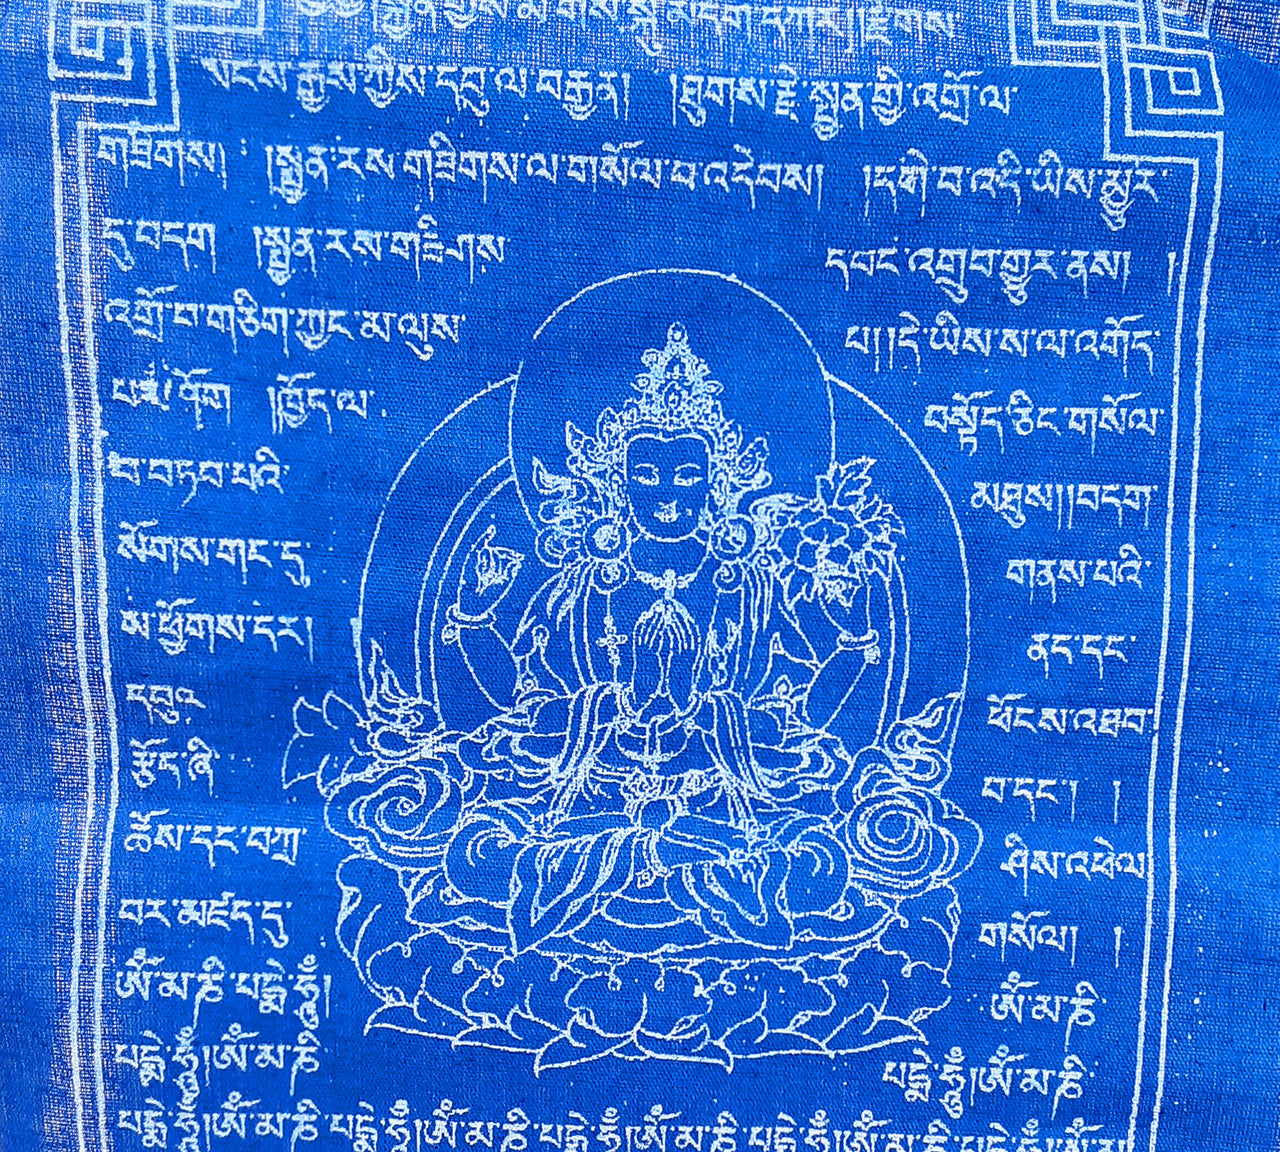 སངས་རྒྱས་ཀྱིས་དབུ་ལ་བརྒྱན། །ཐུགས་རྗེ་སྤྱན་གྱི་འགྲོ་ལ་
གཟིགས། །སྤྱན་རས་གཟིགས་ལ་གསོལ་བ་འདེབས། །དགེ་བ་འདི་ཡིས་མྱུར་
དུ་བདག །སྤྱན་རས་གཟིགས་ དབང་འགྲུབ་གྱུར་ནས། །
འགྲོ་བ་གཅིག་ཀྱང་མ་ལུས་ པ། །དེ་ཡིས་ས་ལ་འགོད་
ཤོག །ཁྱོད་ལ་ བསྟོད་ཅིང་གསོལ་
བ་བཏབ་པའི་ མཐུས། །བདག་
སོགས་གང་དུ་ གནས་པའི་
ས་ཕྱོགས་དེར། ནད་དང་
དབུལ་ ཕོངས་འཐབ་
རྩོད་ཞི་ བ་དང་། །
ཆོས་དང་བཀྲ་ ཤིས་འཕེལ་
བར་མཛད་དུ་ གསོལ། །
ༀ་མ་ཎི་པདྨེ་ཧཱུྃ། ༀ་མ་ཎི་
པདྨེ་ཧཱུྃ།ༀ་མ་ཎི་ པདྨེ་ཧཱུྃ།ༀ་མ་ཎི་
པདྨེ་ཧཱུྃ།ༀ་མ་ཎི་པདྨེ་ཧཱུྃ།ༀ་མ་ཎི་པདྨེ་ཧཱུྃ།ༀ་མ་ཎི་པདྨེ་ཧཱུྃ།ༀ་མ་ཎི་པདྨེ་ཧཱུྃ།ༀ་མ་